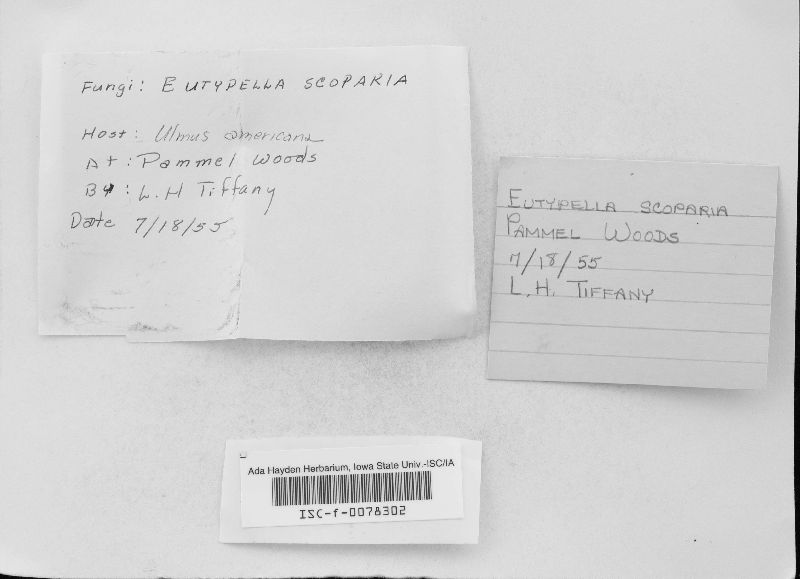 Fungi: EUTYPELLA SCOPARIA
Host: Ulmus americana
At: Pammel Woods
By: L. H Tiffany
Date 7/18/55
EUTYPELLA SCOPARIA
PAMMEL WOODS
7/18/55
L.H. TIFFANY
Ada Hayden Herbarium, Iowa State Univ.-ISC/IA
ISC-f-0078302